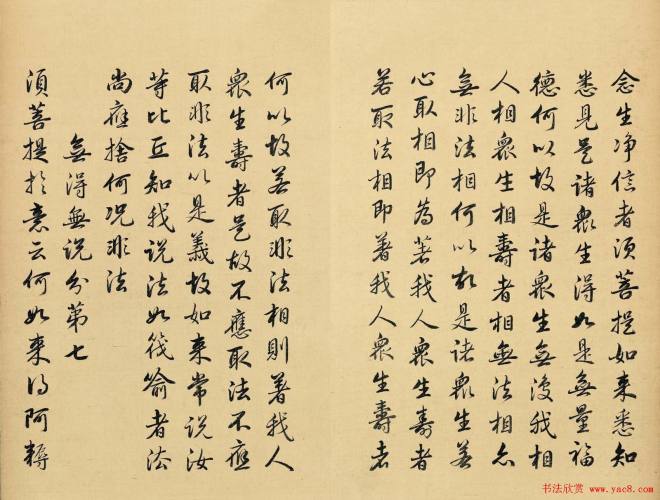 念生净信者須菩提如来悉知
悉見是諸衆生得如是無量福
德何以故是諸衆生無復我相
人相衆生相壽者相無法相亦
無非法相何以故是諸衆生若
心取相即為著我人衆生壽者
若取法相即著我人衆生壽者
何以故若取非法相則著我人
衆生壽者是故不應取法不應
取非法以是義故如来常說汝
等比丘知我說法如筏喻者法
尚應捨何况非法
無得無說分第七
須菩提於意云何如来得阿耨
书法欣赏
www.yac8.com